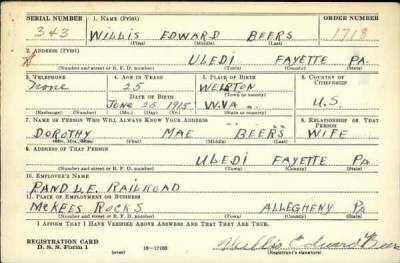 SERIAL NUMBER 1. NAME (Print) ORDER NUMBER
343 WILLIS EDWARD BEERS 1718
(First) (Middle) (Last)
2. ADDRESS (Print)
ULEDI FAYETTE PA.
(Number and street or R. F. D. number) (Town) (County) (State)
3. TELEPHONE 4. AGE IN YEARS 5. PLACE OF BIRTH 6. COUNTRY OF CITIZENSHIP
None 25 WEIRTON
DATE OF BIRTH (Town or county)
JUNE 25 1915 W.VA. U.S.
(Exchange) (Number) (Mo.) (Day) (Yr.) (State or country)
7. NAME OF PERSON WHO WILL ALWAYS KNOW YOUR ADDRESS 8. RELATIONSHIP OF THAT PERSON
DOROTHY MAE BEERS WIFE
(Mr., Mrs., Miss) (First) (Middle) (Last)
9. ADDRESS OF THAT PERSON
ULEDI FAYETTE PA
(Number and street or R. F. D. number) (Town) (County) (State)
10. EMPLOYER'S NAME
P AND L.E. RAILROAD
11. PLACE OF EMPLOYMENT OR BUSINESS
McKEES ROCKS ALLEGHENY PA
(Number and street or R. F. D. number) (Town) (County) (State)
I AFFIRM THAT I HAVE VERIFIED ABOVE ANSWERS AND THAT THEY ARE TRUE.
REGISTRATION CARD
D. S. S. Form 1 (over) 16—17105 Willis Edward Beers
(Registrant's signature)